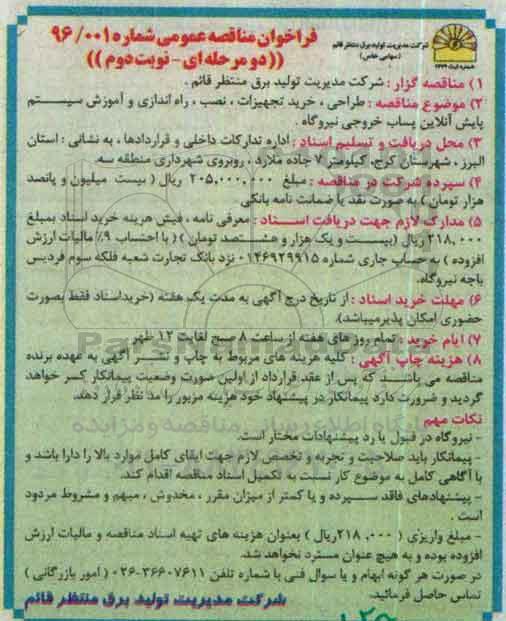 شرکت مدیریت تولید برق منتظر قائم
(سهامی خاص)
فراخوان مناقصه عمومی شماره ۹۶/۰۰۱
((دو مرحله ای - نوبت دوم))
۱) مناقصه گزار : شرکت مدیریت تولید برق منتظر قائم .
۲) موضوع مناقصه : طراحی ، خرید تجهیزات ، نصب ، راه اندازی و آموزش سیستم
پایش آنلاین پساب خروجی نیروگاه .
۳) محل دریافت و تسلیم اسناد : اداره تدارکات داخلی و قراردادها ، به نشانی : استان
البرز ، شهرستان کرج، کیلومتر ۷ جاده ملارد ، روبروی شهرداری منطقه سه.
۴) سپرده شرکت در مناقصه : مبلغ ۲۰۵,۰۰۰,۰۰۰ ریال ( بیست میلیون و پانصد
هزار تومان ) به صورت نقد یا ضمانت نامه بانکی.
۵) مدارک لازم جهت دریافت اسناد : معرفی نامه ، فیش هزینه خرید اسناد بمبلغ
۲۱۸,۰۰۰ ریال (بیست و یک هزار و هشتصد تومان ) ( با احتساب ۹٪ مالیات ارزش
افزوده ) به حساب جاری شماره ۰۱۴۶۹۲۹۹۱۵ نزد بانک تجارت شعبه فلکه سوم فردیس
باجه نیروگاه.
۶) مهلت خرید اسناد : از تاریخ درج آگهی به مدت یک هفته (خریداسناد فقط بصورت
حضوری امکان پذیرمیباشد).
۷) ایام خرید : تمام روز های هفته از ساعت ۸ صبح لغایت ۱۲ ظهر
۸) هزینه چاپ آگهی : کلیه هزینه های مربوط به چاپ و نشر آگهی به عهده برنده
مناقصه می باشد که پس از عقد قرارداد از اولین صورت وضعیت پیمانکار کسر خواهد
گردید و ضرورت دارد پیمانکار در پیشنهاد خود هزینه مزبور را مد نظر قرار دهد.
نکات مهم
- نیروگاه در قبول یا رد پیشنهادات مختار است.
- پیمانکار باید صلاحیت و تجربه و تخصص لازم جهت ایفای کامل موارد بالا را دارا باشد و
با آگاهی کامل به موضوع کار نسبت به تکمیل اسناد مناقصه اقدام کند.
- پیشنهادهای فاقد سپرده و یا کمتر از میزان مقرر ، مخدوش ، مبهم و مشروط مردود
است .
- مبلغ واریزی ( ۲۱۸,۰۰۰ ریال ) بعنوان هزینه های تهیه اسناد مناقصه و مالیات ارزش
افزوده بوده و به هیچ عنوان مسترد نخواهد شد.
در صورت هر گونه ابهام و یا سوال فنی با شماره تلفن ۳۶۶۰۷۶۱۱-۰۲۶ ( امور بازرگانی )
تماس حاصل فرمائید.
شرکت مدیریت تولید برق منتظر قائم